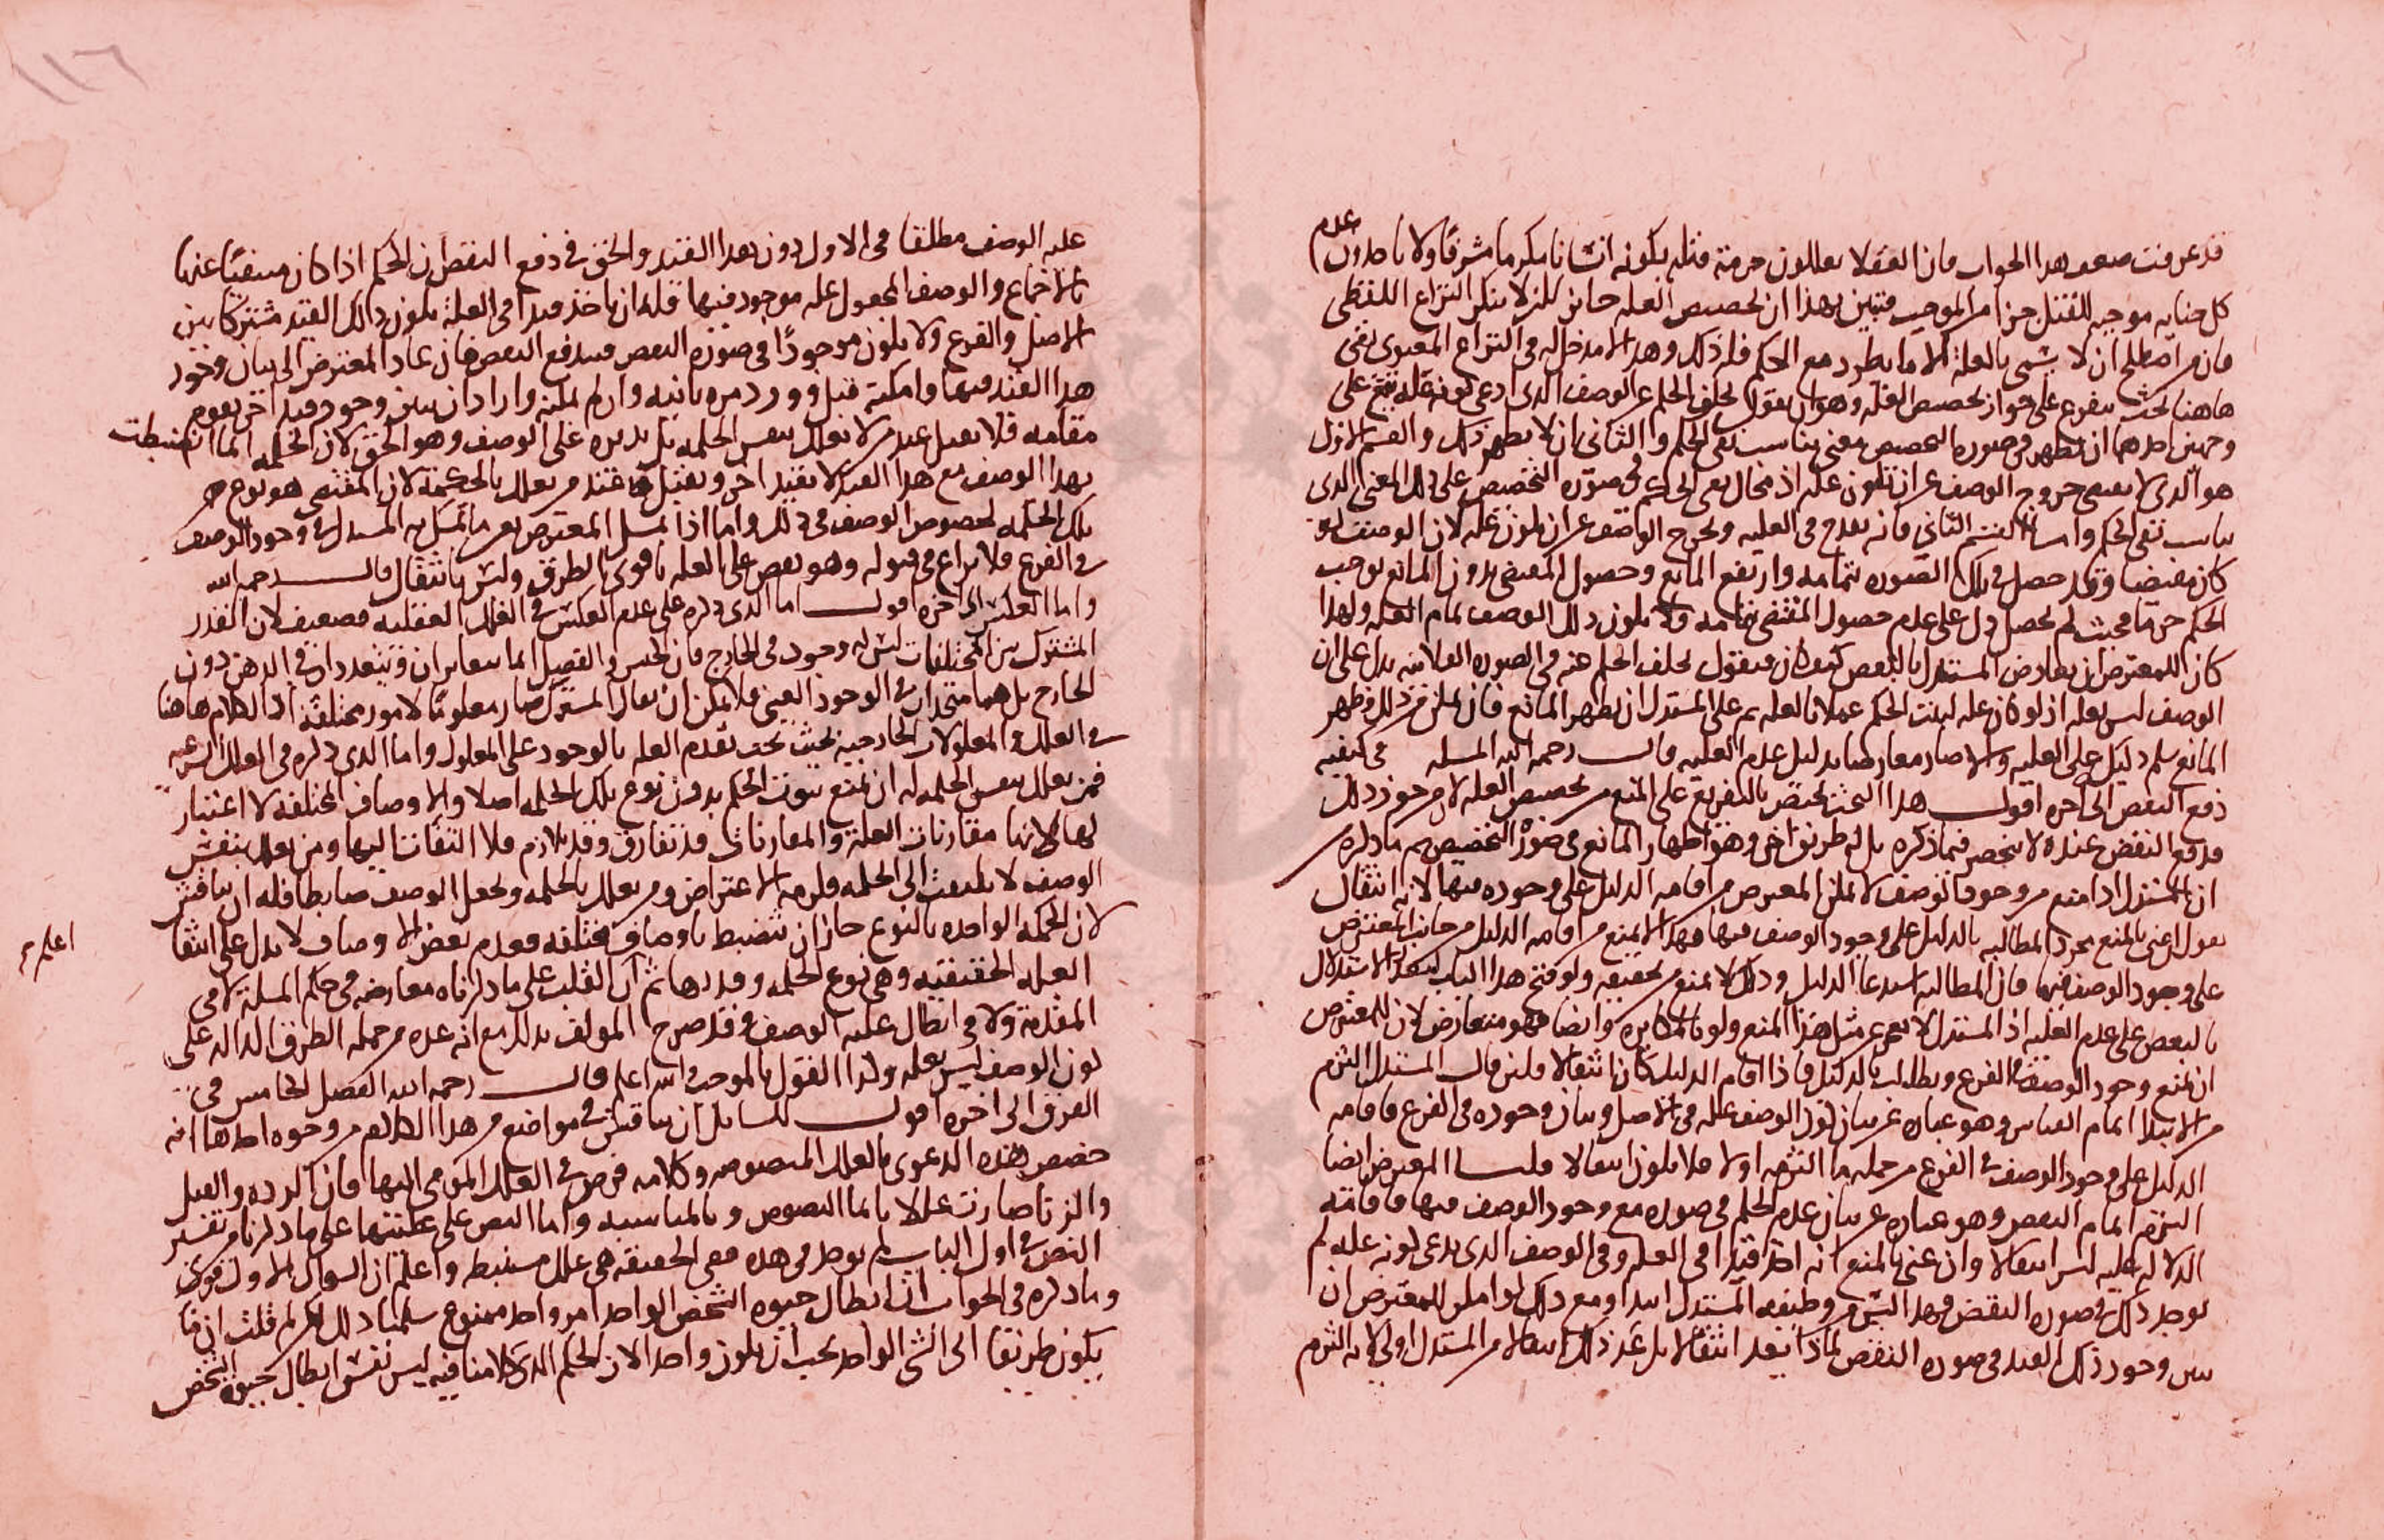 قد عرفت ضعف هذا الجواب فان العقلا يعللون حرمة قتله بكونه انسانا مكرما مشرفا ولا ياخذون عدم
كل جنايه موجبه للقتل جزا من الموجب فتبين بهذا ان تخصيص العله جايز لكن لا ينكر النزاع اللفظى
فان من اصطلح ان لا يسمى بالعلة الا ما يطرد مع الحكم فله ذلك وهذا لا مدخل له فى النزاع المعنوى بقى
هاهنا بحث يتفرع على جواز تخصيص العله وهو ان يقول تخلف الحكم عن الوصف الذى ادعى كونه عله يقع على
وجهين احدهما ان يظهر فى صوره التخصيص معنى يناسب نفى الحكم والثانى ان لا يظهر ذلك والقسم الاول
هو الذى لا يقتضى خروج الوصف عن ان تكون عله اذ محال نفى الحكم فى صوره التخصيص على ذلك المعنى الذى
يناسب نفى الحكم واما القسم الثانى فانه يقدح فى العليه ويخرج الوصف عن ان يكون عله لان الوصف لو
كان مقتضيا وقد حصل فى تلك الصوره بتمامه وارتفع المانع وحصول المقتضى بدون المانع يوجب
الحكم جزما فحيث لم يحصل دل على عدم حصول المقتضى بتمامه فلا يكون ذلك الوصف تمام العله ولهذا
كان للمعترض ان يعارض المستدل بالنقض فيقول تخلف الحكم عنه فى الصوره الفلانيه يدل على ان
الوصف ليس بعله اذ لو كان عله لثبت الحكم عملا بالعله ثم على المستدل ان يظهر المانع فان تمكن من ذلك وظهر
المانع سلم دليل على العليه والا صار معارضا بدليل عدم العليه قال رحمه الله المسله فى كيفيه
دفع النقض الى آخره اقول هذا البحث مختص بالتفريع على المنع من تخصيص العله لا من جوز ذلك
فدفع النقض عنده لا ينحصر فيما ذكره بل له طريق اخر وهو اظهار المانع فى صورة التخصيص ثم ما ذكره
ان المستدل اذا منع من وجود الوصف لا يمكن المعترض من اقامه الدليل على وجوده فيها لانه انتقال
نقول ان عنى بالمنع مجرد المطالبه بالدليل على وجود الوصف فيها فهذا لا يمنع من اقامه الدليل من جانب المعترض
على وجود الوصف فيها فان المطالبه استدعا الدليل وذلك لا يمنع من تحقيقه ولو فتح هذا الباب لتعذر الاستدلال
بالنقض على عدم العليه اذ المستدل لا يعجز عن مثل هذا المنع ولو بالمكابره وايضا فهو متعارض لان للمعترض
ان يمنع وجود الوصف فى الفرع ويطالب بالدليل فاذا اقام الدليل كان انتقالا ولئن قال المستدل التزم
من الابتدا اتمام القياس وهو عباره عن بيان كون الوصف عله فى الاصل وبيان وجوده فى الفرع فاقامه
الدليل على وجود الوصف فى الفرع من جمله ما التزمه اولا فلا يكون انتقالا قلنا المعترض ايضا
التزم اتمام النقض وهو عباره عن بيان عدم الحكم فى صوره مع وجود الوصف فيها فاقامته
الدلاله عليه ليس انتقالا وان عنى بالمنع انه اخذ قيدا فى العله وفى الوصف الذى يدعى كونه عله لم
يوجد ذلك فى صوره النقض فهذا ليس من وظيفه المستدل ابتدا ومع ذلك لو امكن للمعترض ان
يبين وجود ذلك القيد فى صوره النقض لماذا يعد انتقالا بل عد ذلك انتقالا من المستدل اولى لانه التزم
١١٦
عليه الوصف مطلقا فى الاول دون هذا القيد والحق فى دفع النقض ان الحكم اذا كان منفيا عنها
بالاجماع والوصف المجعول عله موجود فيها فله ان ياخذ قيدا فى العلة يكون ذلك القيد مشتركا بين
الاصل والفرع ولا يكون موجودا فى صوره النقض فيندفع النقض فان عاد المعترض الى بيان وجود
هذا القيد فيها وامكنه قبل وورد مره ثانيه وان لم يمكنه واراد ان يبين وجود قيد آخر يقوم
مقامه فلا يقبل عند من لا يعلل بنفس الحكمه بل يديره على الوصف وهو الحق لان الحكمه انما انضبطت
بهذا الوصف مع هذا القيد لا بقيد آخر ويقبل عند من يعلل بالحكمة لان المقتضى هو نوع من
تلك الحكمه لخصوص الوصف فى ذلك واما اذا تمسك المعترض بعين ما تمسك به المستدل فى وجود الوصف
فى الفرع فلا نزاع فى قبوله وهو نقض على العله باقوى الطرق وليس بانتقال قال رحمه الله
واما العكس الى آخره اقول اما الذى ذكره على عدم العكس فى العلل العقليه فضعيف لان القدر
المشترك بين المختلفات ليس له وجود فى الخارج فان الجنس والفصل انما يتغايران ويتعددان فى الذهن دون
الخارج بل هما متحدان فى الوجود العينى فلا يمكن ان يقال المشترك صار معلولا لامور مختلفة اذ الكلام هاهنا
فى العلل والمعلولات الخارجيه بحيث يجب تقدم العله بالوجود على المعلول واما الذى ذكره فى العلل الشرعيه
فمن يعلل بنفس الحكمه له ان يمنع ثبوت الحكم بدون نوع تلك الحكمه اصلا والاوصاف المختلفه لا اعتبار
لها لانها مقارنات العله والمقارنات قد تفارق وقد تلازم فلا التفات اليها ومن يعلل بنفس
الوصف لا يلتفت الى الحكمه فلزمه الاعتراض ومن يعلل بالحكمه ويجعل الوصف ضابطا فله ان يناقش
لان الحكمه الواحده بالنوع جاز ان تنضبط باوصاف مختلفه فعدم بعض الاوصاف لا يدل على انتفا
العله الحقيقيه وهى نوع الحكمه وقدرها ثم ان القلب على ما ذكرناه معارضه فى حكم المسله لا فى
اعلم
المقدمه ولا فى ابطال عليه الوصف وقد صرح المولف بذلك مع انه عده من جمله الطرق الداله على
كون الوصف ليس بعله وكذا القول بالموجب والله اعلم قال رحمه الله الفصل الخامس فى
الفرق الى آخره اقول للسايل ان يناقش فى مواضع من هذا الكلام من وجوه احدها انه
خصص هذه الدعوى بالعلل المنصوصه وكلامه فرض فى العلل المومى اليها فان الرده والقتل
والزنا صارت عللا بايما النصوص وبالمناسبه واما النص على عليتها على ما ذكرنا من تفسير
النص فى اول الباب لم يوجد فى هذه ففى الحقيقه هى علل مستنبطه واعلم ان السوال الاول قوى
وما ذكره فى الجواب ان ابطال حيوه الشخص الواحد امر واحد ممنوع سلمنا ذلك لكن لم قلت ان ما
يكون طريقا الى الشى الواحد يجب ان يكون واحدا لان الحكم الذى كلامنا فيه ليس نفس ابطال حيوه الشخص